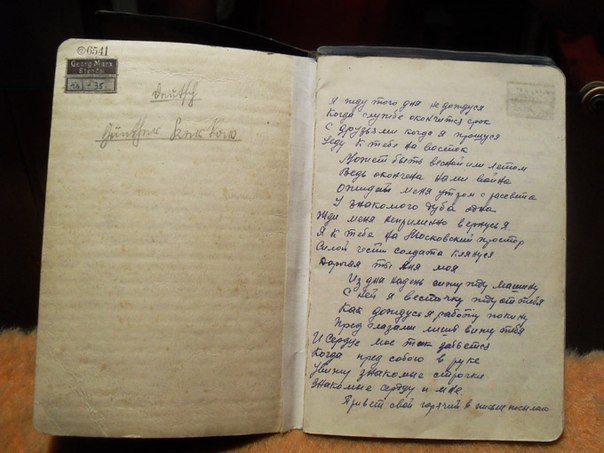 6541
Georg Marx
Deutsch
Günther
Я жду того дня не дождуся
Когда службе окончится срок
С друзьями когда я прощуся
Уеду к тебе на восток
Может быть весной или летом
Ведь окончена нами война
Ожидай меня утром с рассвета
У знакомого дуба одна
Жди меня неприменно вернуся я
Я к тебе на Московский простор
Силой чести солдата клянуся
Дорогая ты Аня моя
Из дна надень сижу жду машину
С ней я весточку жду от тебя
Как дождуся я работу покину
Пред глазами лишь вижу тебя
И сердце мое так забьется
Когда пред собою в руке
Увижу знакомые строчки
Знакомые сердцу и мне
Привет свой горячий в письме посылаю